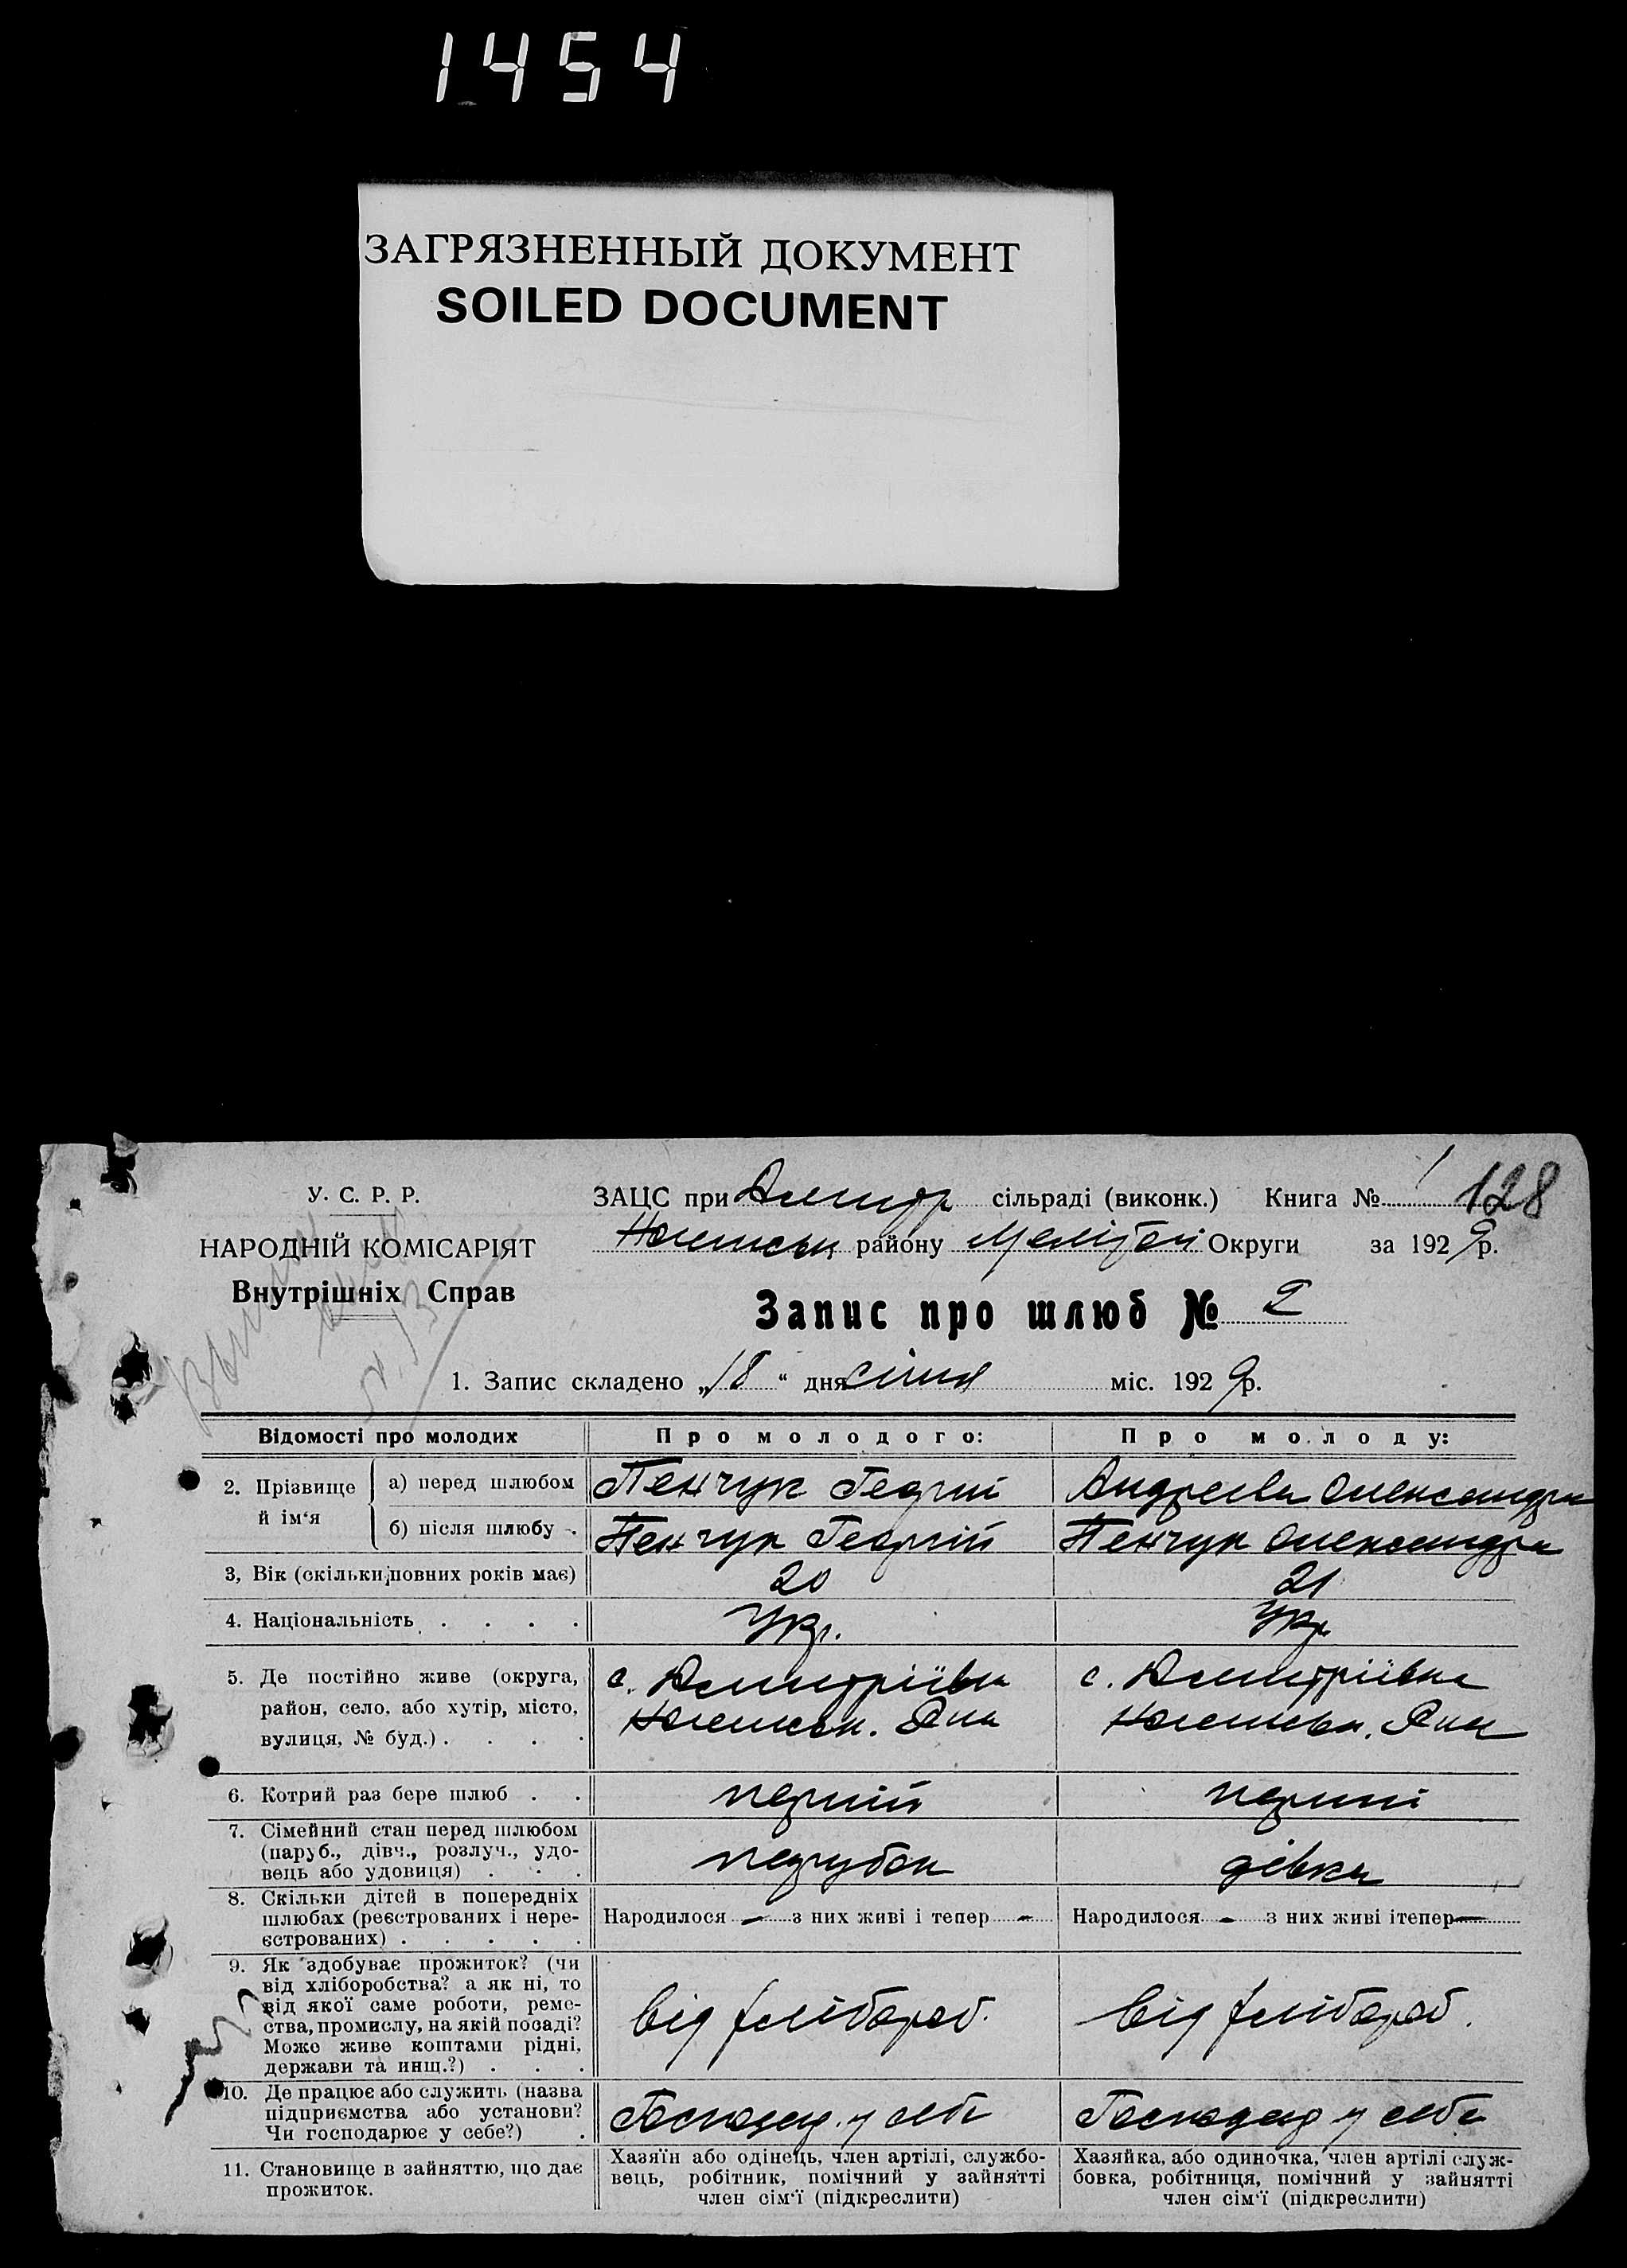 1454
ЗАГРЯЗНЕННЫЙ ДОКУМЕНТ
SOILED DOCUMENT
У. С. Р. Р.
НАРОДНІЙ КОМІСАРІЯТ
Внутрішніх Справ
ЗАЦС при Дмитр сільраді (виконк.) Книга № 128
району Меліто Округи за 1929 р.
Запис про шлюб № 2
1. Запис складено „18“ дня січня міс. 1929 р.
Відомості про молодих Про молодого: Про молоду:
2. Прізвище й ім‘я а) перед шлюбом Пенчук Георгій Андреєва Олександра
б) після шлюбу Пенчук Георгій Пенчук Олександра
3, Вік (скільки повних років має) 20 21
4. Національність . . . . Укр. Укр.
5. Де постійно живе (округа, с. Дмитріївка с. Дмитріївка
район, село, або хутір, місто,
вулиця, № буд.) . . . .
6. Котрий раз бере шлюб . . перший перший
7. Сімейний стан перед шлюбом
(паруб., дівч., розлуч., удо-
вець або удовиця) . . . парубок дівка
8. Скільки дітей в попередніх
шлюбах (реєстрованих і нере-
єстрованих) . . . . . Народилося - з них живі і тепер - Народилося - з них живі ітепер -
9. Як здобуває прожиток? (чи
від хліборобства? а як ні, то
від якої саме роботи, реме-
ства, промислу, на якій посаді?
Може живе коштами рідні,
держави та инш.?) . . . від хлібороб. від хлібороб.
10. Де працює або служить (назва
підприємства або установи?
Чи господарює у себе?) . Господар. у себе Господар у себе
11. Становище в зайняттю, що дає
прожиток.
Хазяїн або одінець, член артілі, службо-
вець, робітник, помічний у зайнятті
член сім‘ї (підкреслити)
Хазяйка, або одиночка, член артілі служ-
бовка, робітниця, помічний у зайнятті
член сім‘ї (підкреслити)